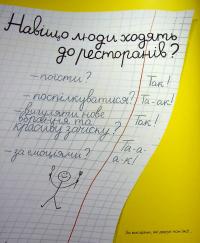 Навіщо люди ходять
до ресторанів?
– поїсти? Так!
– поспілкуватися? Та-ак!
– вигуляти нове
вбрання та
красиву зачіску? Так!
– за емоціями? Та-а-
а-к!